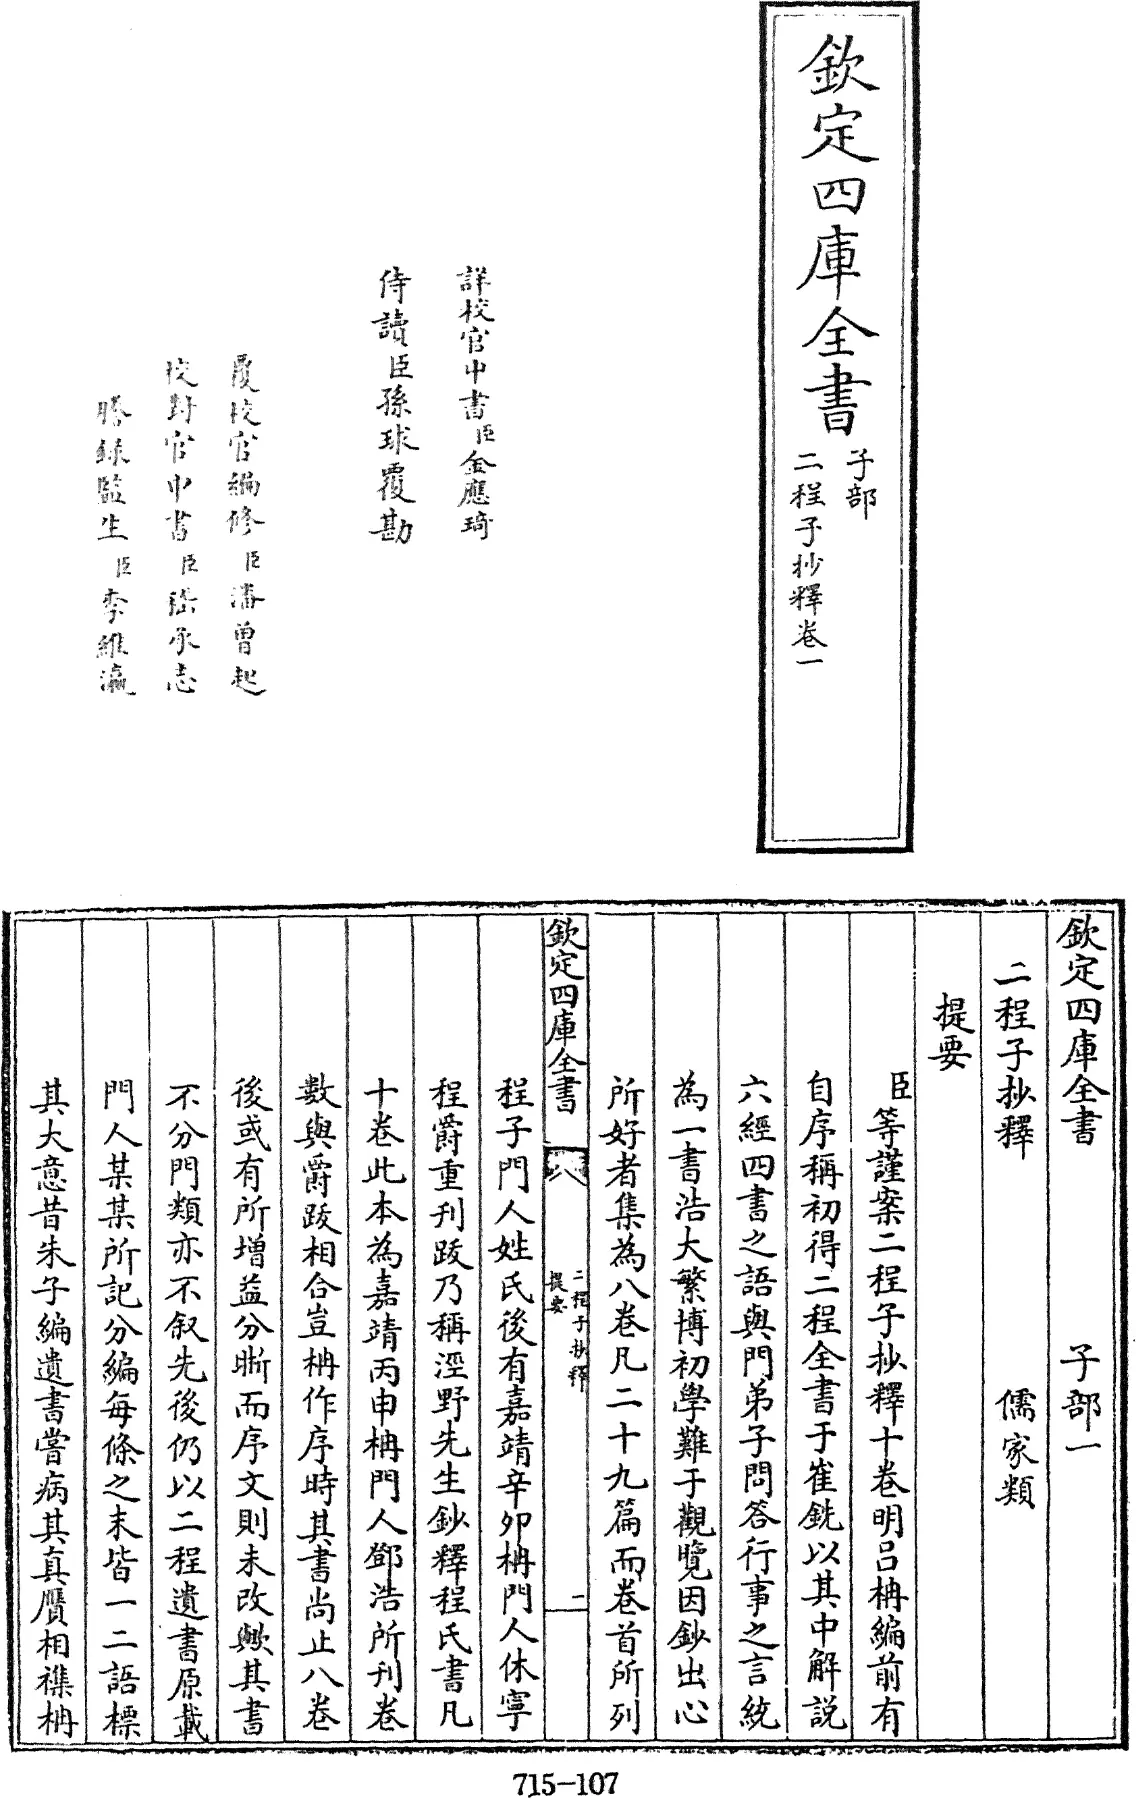 欽定四庫全書
子部
二程子抄釋卷一
詳校官中書臣金應琦
侍讀臣孫球覆勘
覆校官編修臣潘曾起
校對官中書臣嵇承志
謄錄監生臣李維瀛
欽定四庫全書 子部一
二程子抄釋 儒家類
提要
臣等謹案二程子抄釋十卷明呂柟編前有
自序稱初得二程全書于崔銑以其中解說
六經四書之語與門弟子問答行事之言統
為一書浩大繁博初學難于觀覽因鈔出心
所好者集為八卷凡二十九篇而卷首所列
欽定四庫全書
二程子抄釋
提要
二
程子門人姓氏後有嘉靖辛卯柟門人休寧
程爵重刊跋乃稱涇野先生鈔釋程氏書凡
十卷此本為嘉靖丙申柟門人鄧浩所刊卷
數與爵跋相合豈柟作序時其書尚止八卷
後或有所增益分晰而序文則未改歟其書
不分門類亦不叙先後仍以二程遺書原載
門人某某所記分編每條之末皆一二語標
其大意昔朱子編遺書嘗病其真贗相襍柟
715-107